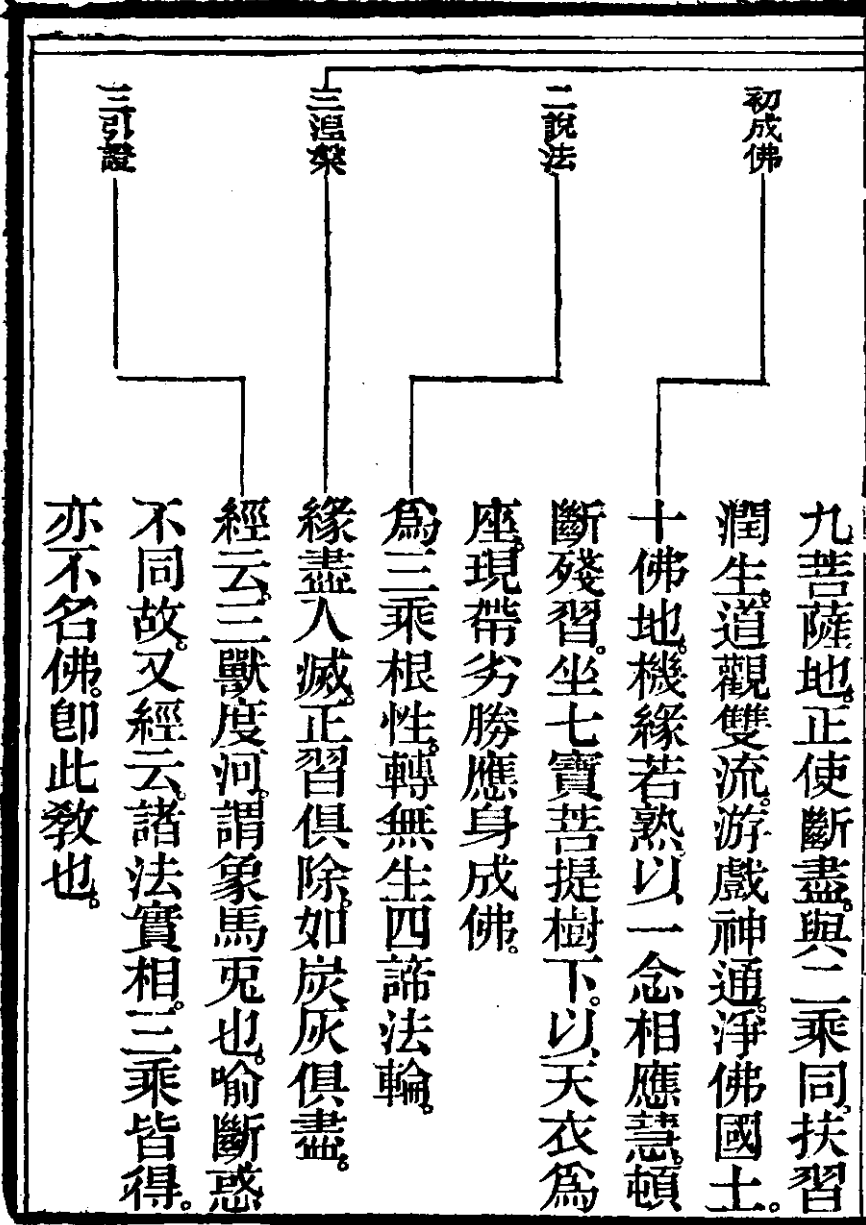 初成佛
二說法
三涅槃
三引證
九菩薩地。正使斷盡。與二乘同。扶習
潤生。道觀雙流。游戲神通。淨佛國土。
十佛地。機緣若熟。以一念相應慧。頓
斷殘習。坐七寶菩提樹下。以天衣為
座。現帶劣勝應身成佛。
為三乘根性。轉無生四諦法輪。
緣盡入滅。正習俱除。如炭灰俱盡。
經云。三獸度河。謂象馬兎也。喻斷惑
不同故。又經云。諸法實相。三乘皆得。
亦不名佛。卽此教也。